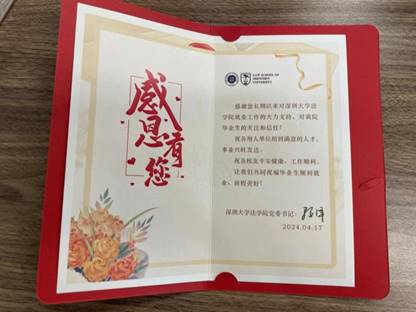 感恩有您
LAW SCHOOL OF
SHENZHEN
UNIVERSITY
感谢您长期以来对深圳大学法
学院就业工作的大力支持、对我院
毕业生的关注和信任!
祝各用人单位招到满意的人才,
事业兴旺发达。
祝各校友平安健康,工作顺利。
让我们共同祝福毕业生顺利就
业,前程美好!
深圳大学法学院党委书记:
2024.04.17